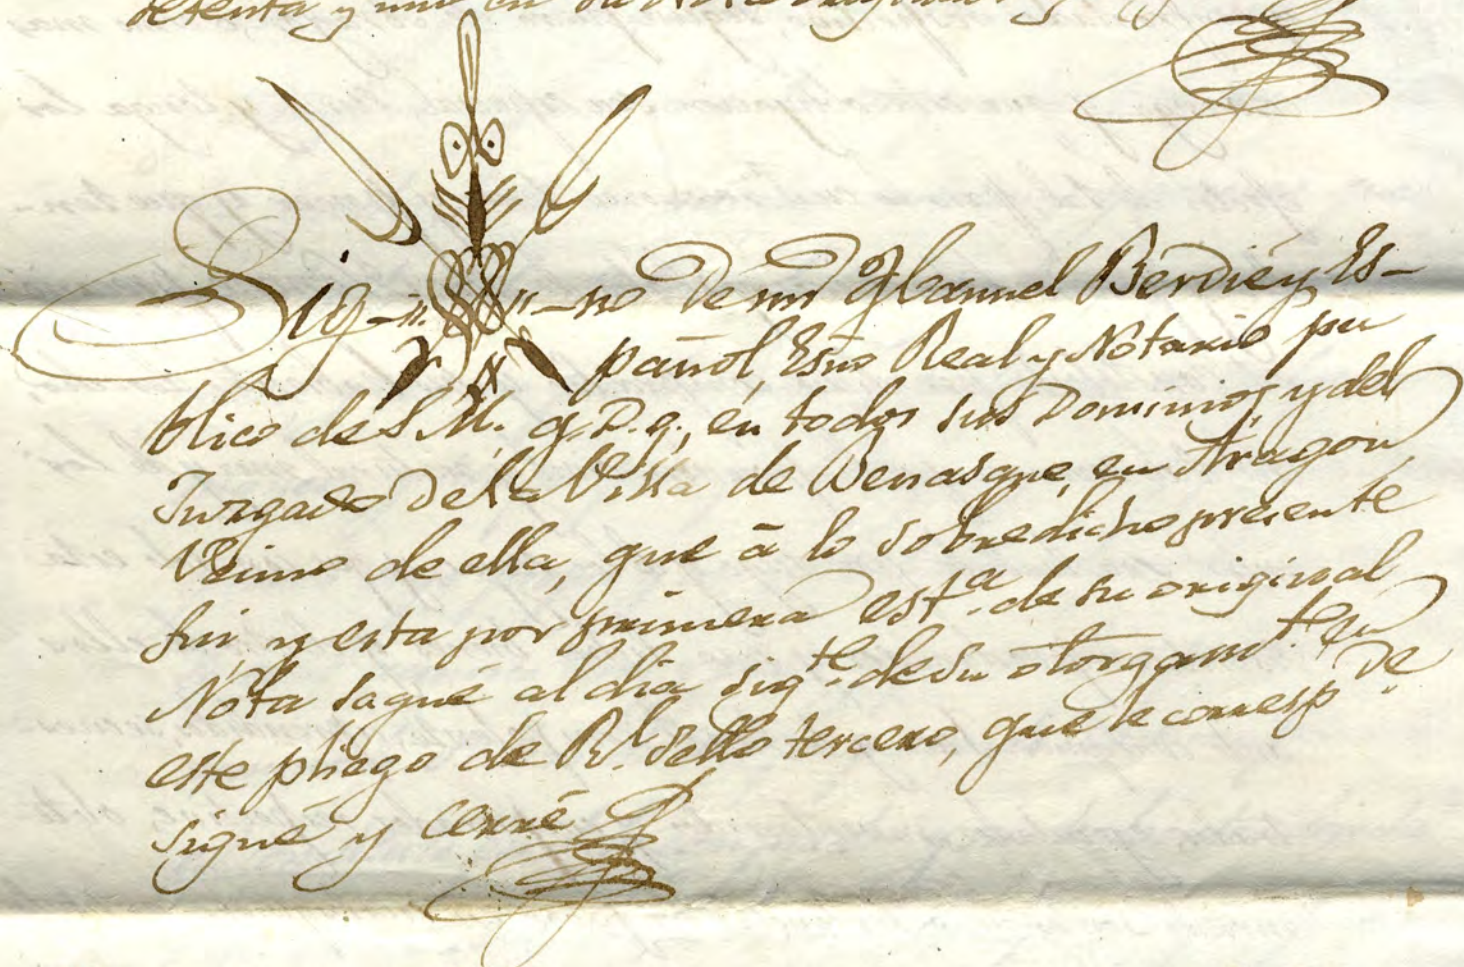 setenta y uno en
Sig-no De mi Manuel Berdiéy Es-
pañol, Esno Real y Notario pu
blico de S.M. q.D.g., en todos sus Dominios, y del
Juzgado De la Villa de Benasque, en Aragon
Vecino de ella, que à lo sobredicho presente
fui, y esta por primera estª. de su original
Nota saqué al dia sigte. de su otorgamte. en
este pliego de Rl. Sello tercero, que le correspde.
signé y cerré